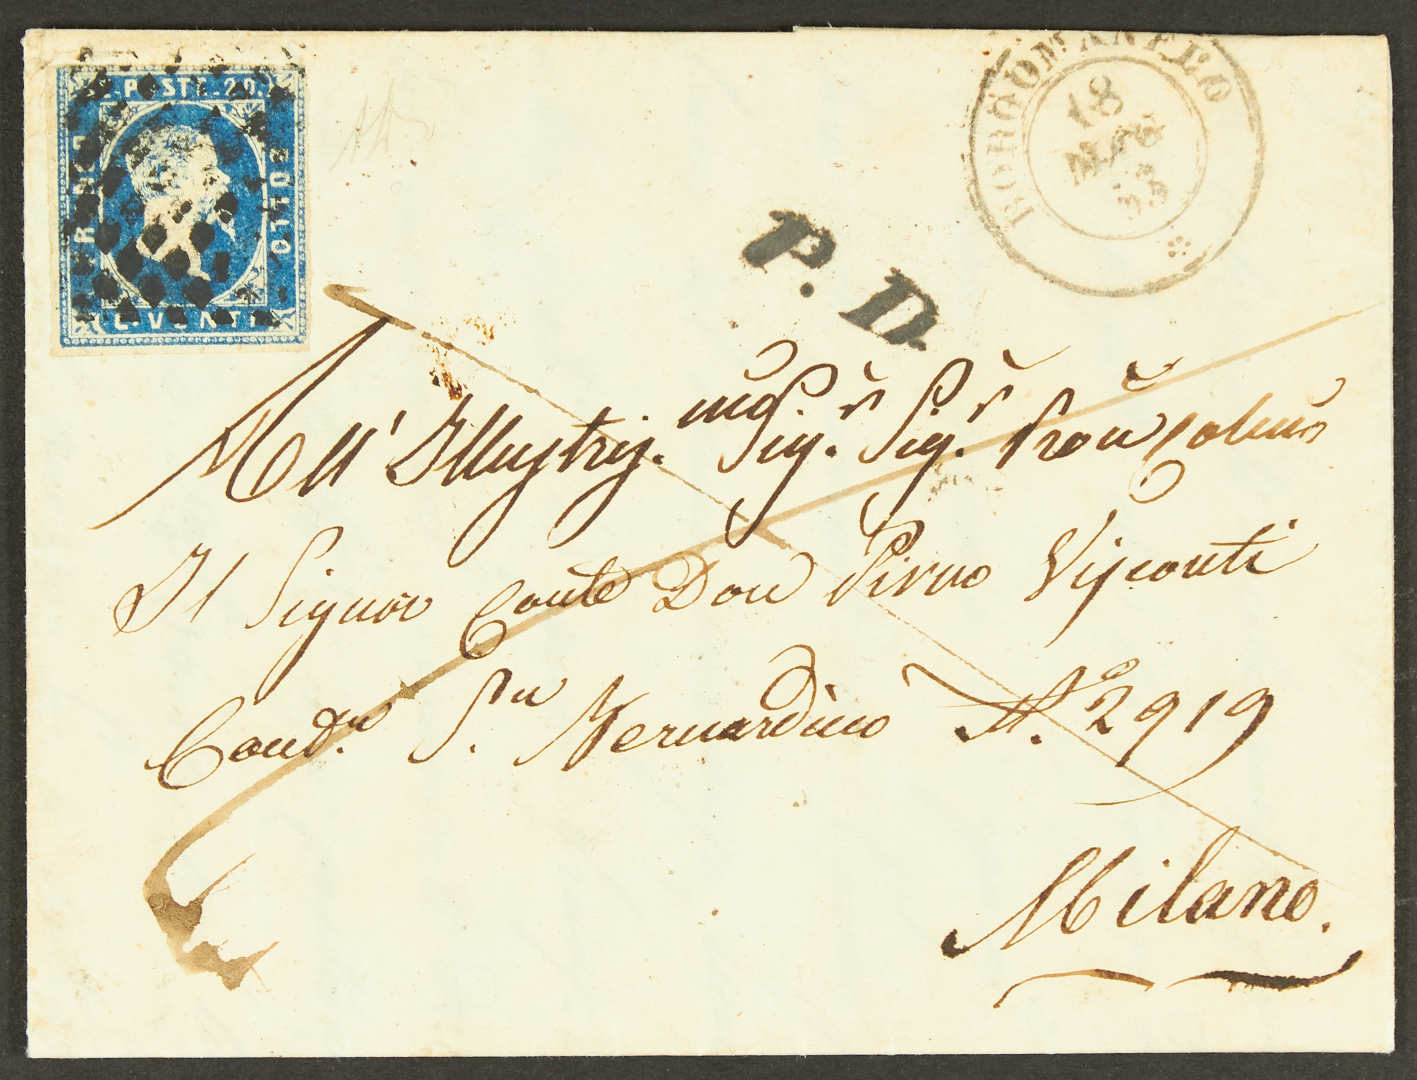 C. POSTE. 20.
FRANCO
BOLLO
C. VENTI
BORGOMANERO
18
MAG
53
P. D.
All' Illustris.mo Sig.r Sig.r Pron Colmo
Il Signor Conte Don Pirro Visconti
Cont.a S.n Bernardino N.o 2919
Milano.